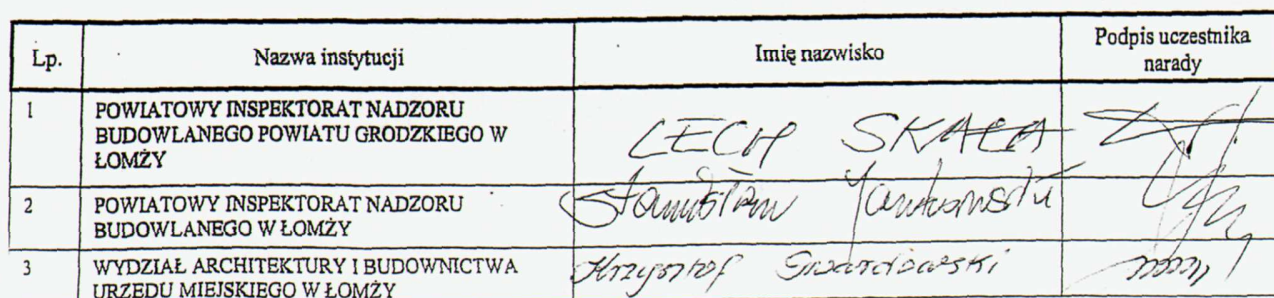 Lp. Nazwa instytucji Imię nazwisko Podpis uczestnika
narady
1 POWIATOWY INSPEKTORAT NADZORU
BUDOWLANEGO POWIATU GRODZKIEGO W
ŁOMŻY
LECH SKAŁA
2 POWIATOWY INSPEKTORAT NADZORU
BUDOWLANEGO W ŁOMŻY
Stanisław
3 WYDZIAŁ ARCHITEKTURY I BUDOWNICTWA
URZĘDU MIEJSKIEGO W ŁOMŻY
Krzysztof